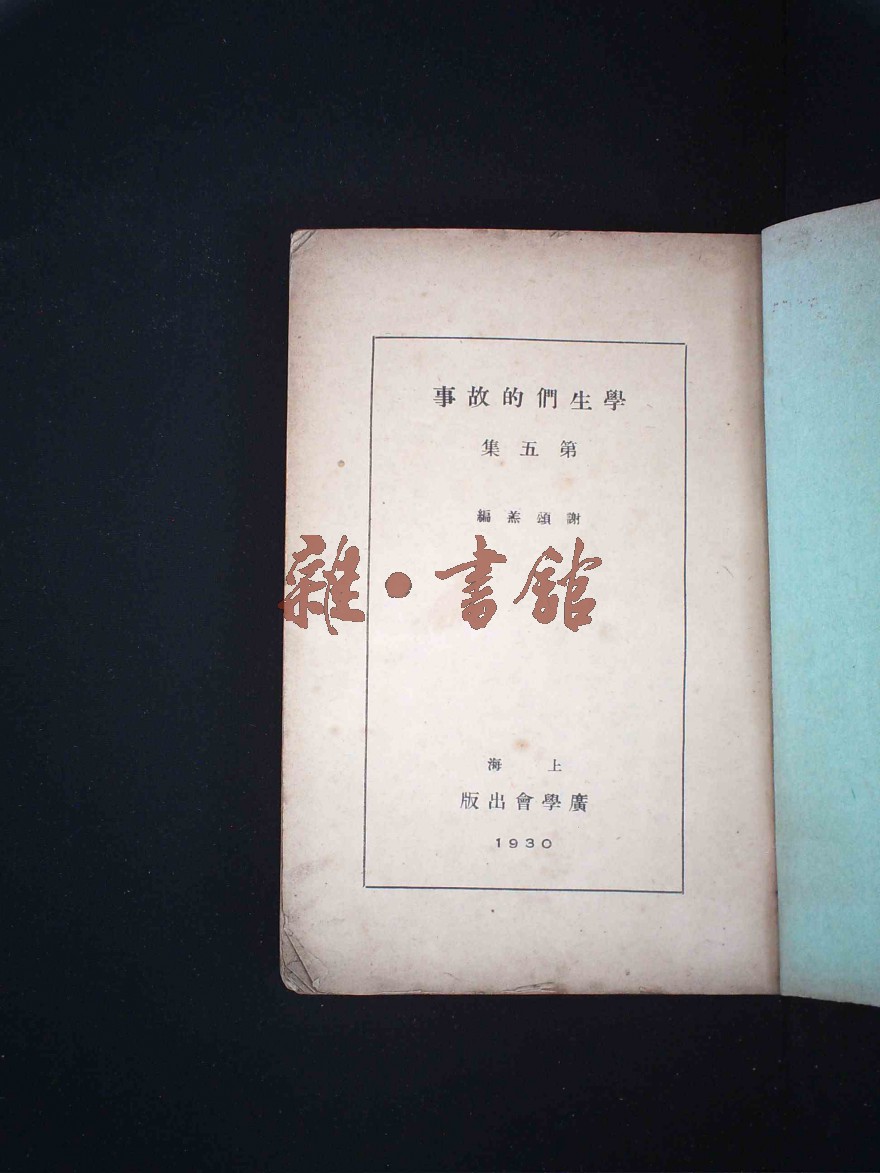 學生們的故事
第五集
謝頌羔編
雜·書館
上海
廣學會出版
1930